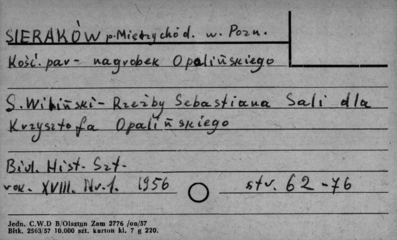 SIERAKÓW p. Międzychód. w. Pozn.
Kość. par - nagrobek Opalińskiego
S. Wiliński - Rzeźby Sebastiana Sali dla
Krzysztofa Opalińskiego
Biul. Hist. Szt.
rok. XVIII. Nr. 1. 1956 str. 62-76
Jedn. C.W.D B/Olsztyn Zam 2776 /on/57
Bltk. 2563/57 10.000 szt. karton kl. 7 g 220.